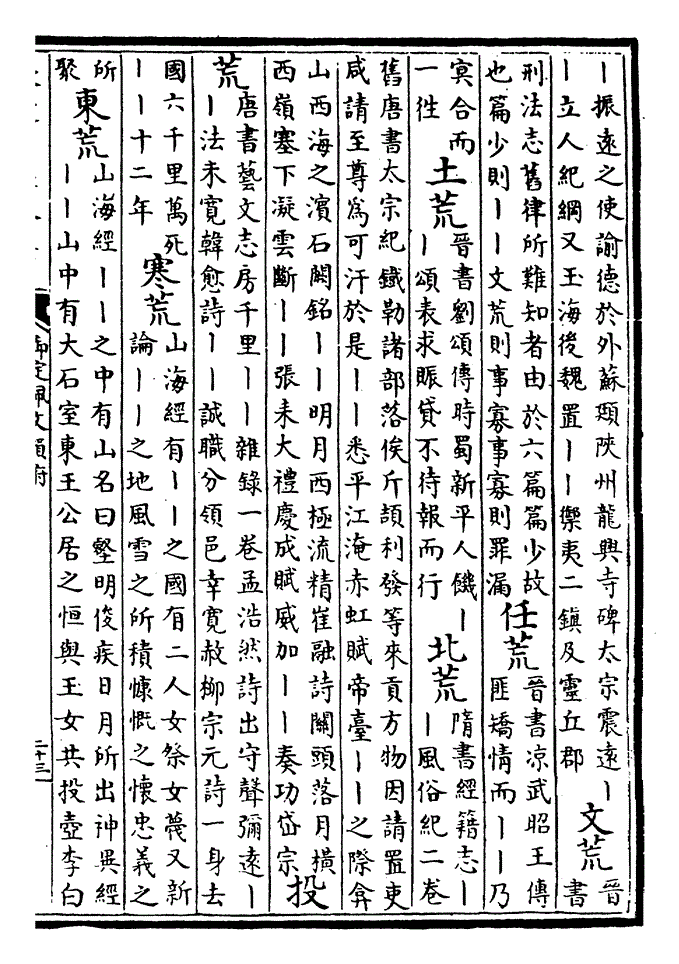 ｜振遠之使諭德於外蘇頲陜州龍興寺碑太宗震遠｜
｜立人紀綱又玉海後魏置｜｜禦夷二鎮及靈丘郡
文荒
晉
書
刑法志舊律所難知者由於六篇篇少故
也篇少則｜｜文荒則事寡事寡則罪漏
任荒
晉書凉武昭王傳
匪矯情而｜｜乃
㝠合而
一徃
土荒
晉書劉頌傳時蜀新平人饑｜
｜頌表求賑貸不待報而行
北荒
隋書經籍志｜
｜風俗紀二卷
舊唐書太宗紀鐵勒諸部落俟斤頡利發等來貢方物因請置吏
咸請至尊爲可汗於是｜｜悉平江淹赤虹賦帝臺｜｜之際弇
山西海之濱石闕銘｜｜明月西極流精崔融詩關頭落月橫
西嶺塞下凝雲斷｜｜張耒大禮慶成賦威加｜｜奏功岱宗
投
荒
唐書藝文志房千里｜｜雜錄一卷孟浩然詩出守聲彌遠｜
｜法未寛韓愈詩｜｜誠職分領邑幸寛赦柳宗元詩一身去
國六千里萬死
｜｜十二年
寒荒
山海經有｜｜之國有二人女祭女薎又新
論｜｜之地風雪之所積慷慨之懷忠義之
所
聚
東荒
山海經｜｜之中有山名曰壑明俊疾日月所出神異經
｜｜山中有大石室東王公居之恒與玉女共投壺李白
御定佩文韻府
二十三